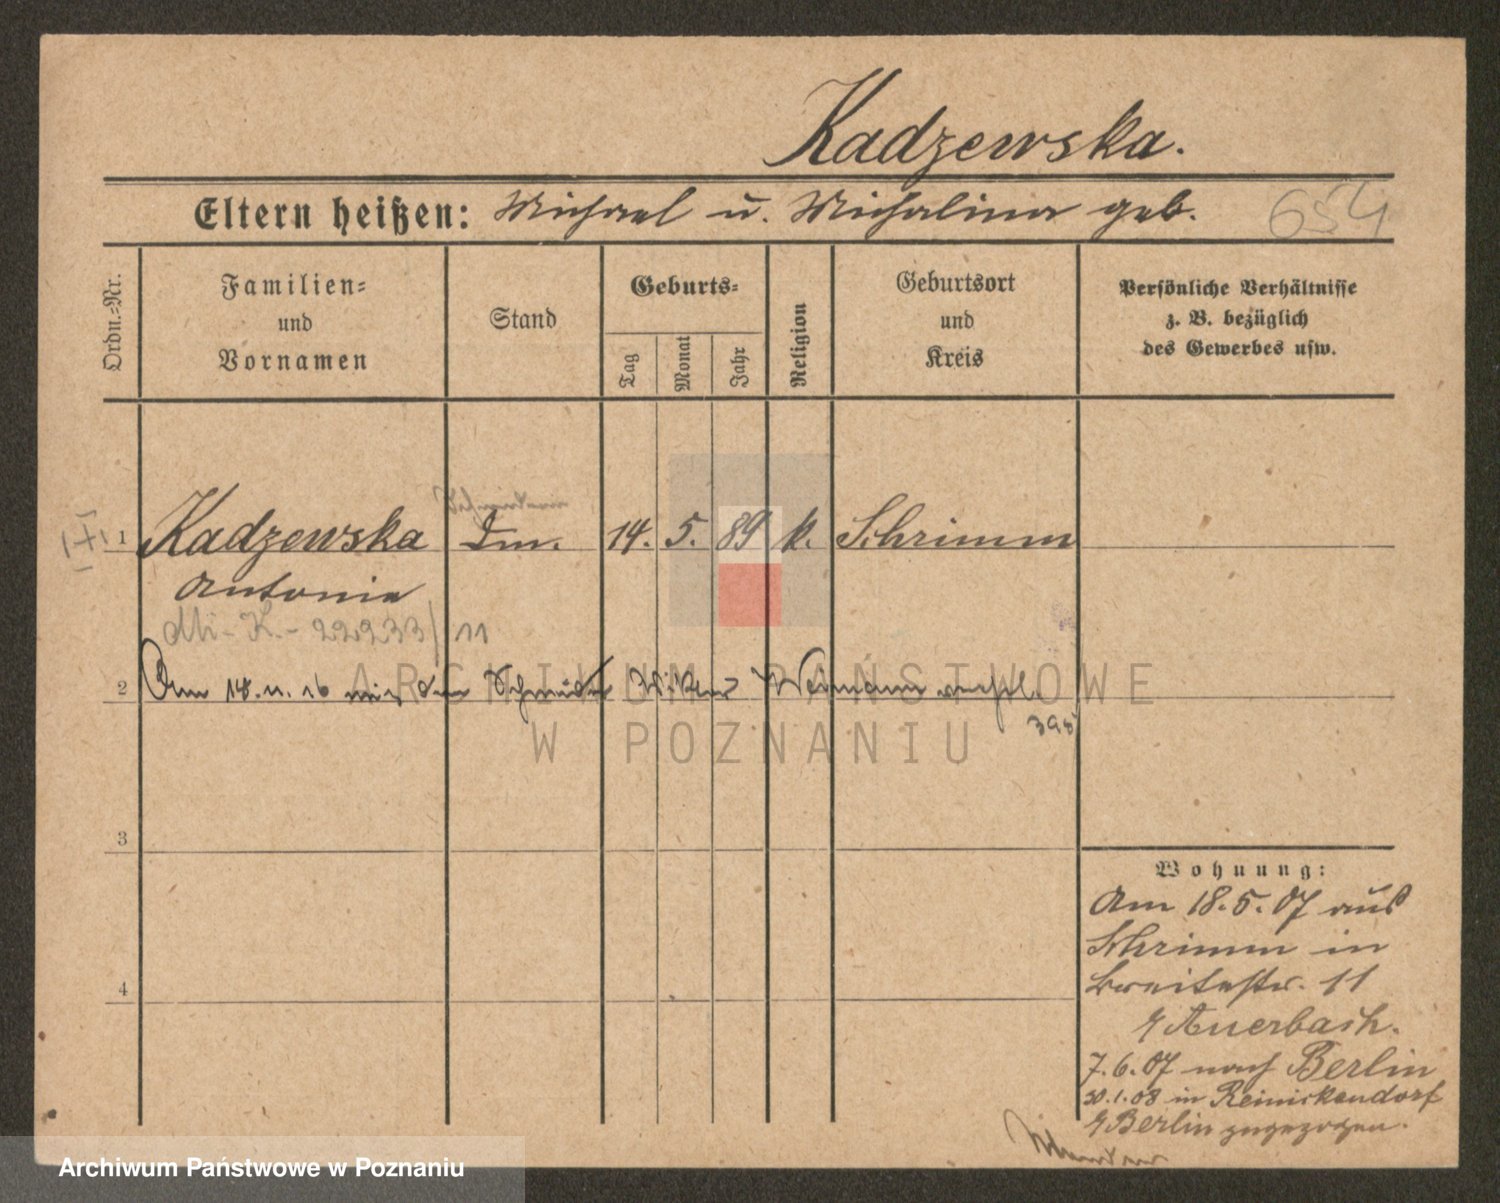 Kadzewska.
Eltern heißen: Michael u. Michalina geb.
654
Ordn.-Nr.
Familien-
und
Vornamen
Stand
Geburts-
Tag
Monat
Jahr
Religion
Geburtsort
und
Kreis
Persönliche Verhältnisse
z. B. bezüglich
des Gewerbes usw.
1 Kadzewska 14. 5. 89 k. Schrimm
Antonie
K. - 22233/11
2 Am 18. 11. 16 mit dem Schneider Viktor verehel.
395
3
4
Wohnung:
Am 18.5.07 aus
Schrimm in
Breitestr. 11
b/ Auerbach.
7.6.07 nach Berlin
30.1.08 in Reinickendorf
b/ Berlin zugezogen.
ARCHIWUM PAŃSTWOWE
W POZNANIU
Archiwum Państwowe w Poznaniu